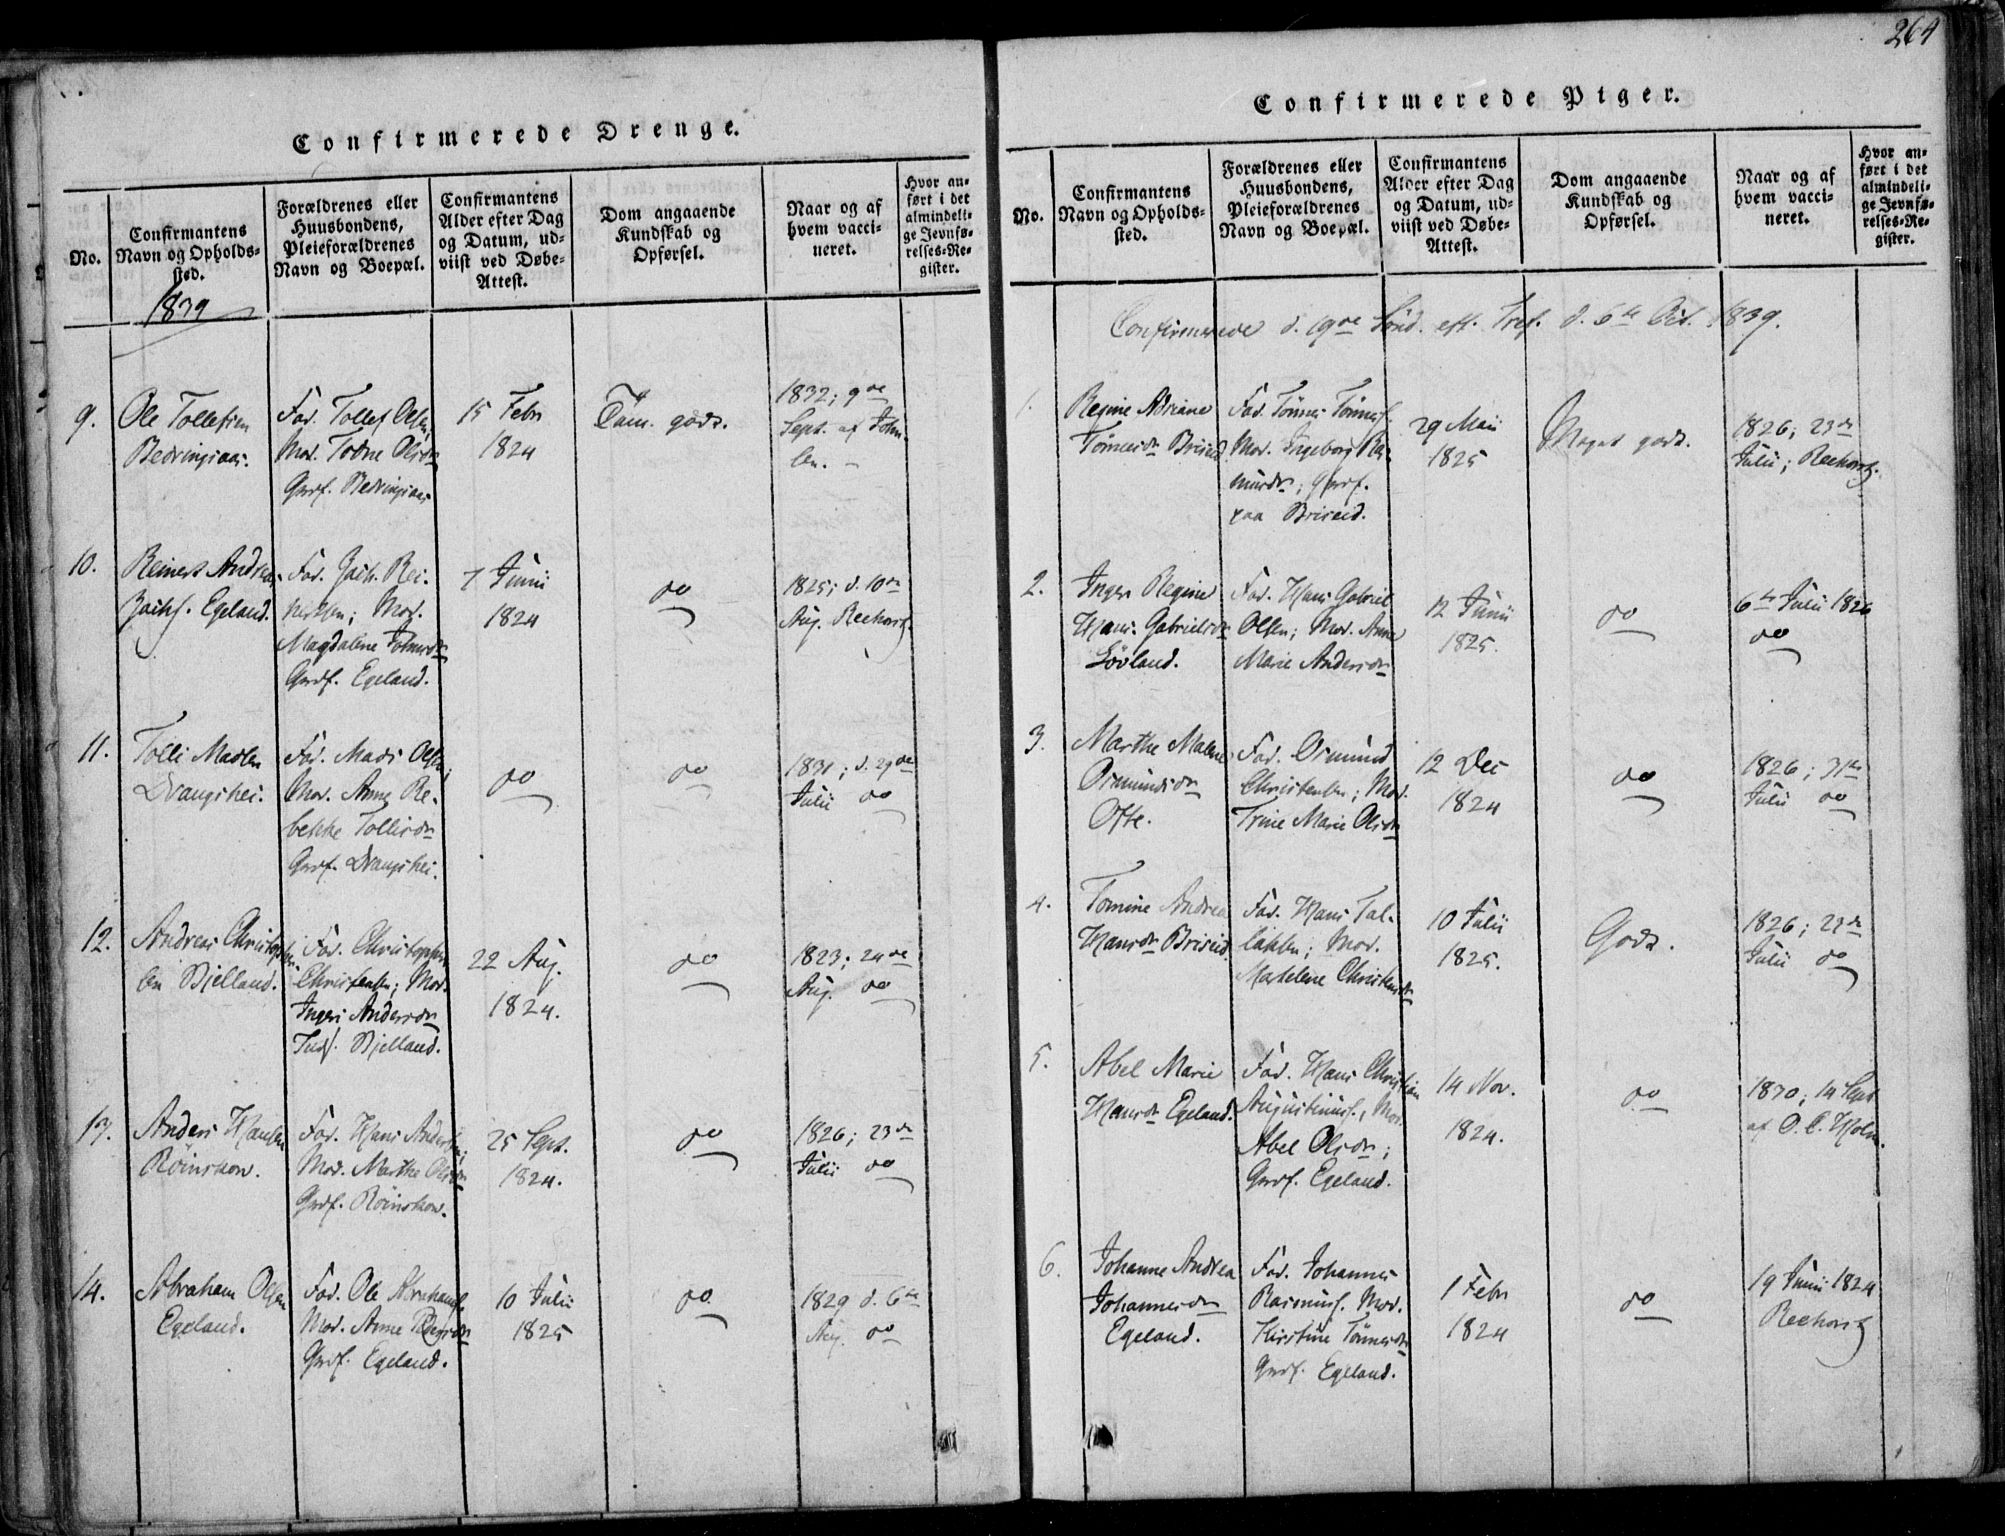 264
Confirmerede Drenge.
No.
Confirmantens
Navn og Opholds-
sted.
Forældrenes eller
Huusbondens,
Pleieforældrenes
Navn og Boepæl.
Confirmantens
Alder efter Dag
og Datum, ud-
viist ved Døbe-
Attest.
Dom angaaende
Kundskab og
Opførsel.
Naar og af
hvem vacci-
neret.
Hvor an-
ført i det
almindeli-
ge Jevnfø-
relses-Re-
gister.
1839
9.
Ole Tollefsen
Fad. Tollef Olsen,
Mod. Todne Olsdr
15 Febr
1824
Tam. godt.
1832; 9de
Sept. af John-
sen.
10.
Reinert Andreas
Zachs. Egeland.
Fad. Zach. Rei-
nertsen; Mod.
Magdalene
Grdf. Egeland.
7 Junii
1824
do
1825; d. 10de
Aug. Reehorst.
11.
Tolli Madsen
Drangshei.
Fad. Mads Olsen,
Mod. Anne Re-
bekke Tollisdr
Grdf. Drangshei.
do
do
1831; d. 29de
Julii do
12.
Andreas Christoph-
sen Bjelland.
Fad. Christopher
Christensen; Mod.
Inger Andersdr
Bjelland.
22 Aug.
1824.
do
1823; 24de
Aug. do
13.
Anders Hansen
Röinskow.
Fad. Hans Andersen,
Mod. Marthe Olsdr
Grdf. Röinskow.
25 Sept.
1824.
do
1826; 23de
Julii do
14.
Abraham Olsen
Egeland.
Fad. Ole Abrahams.
Mod. Anne Pedersdr
Grdf. Egeland.
10 Julii
1825
do
1829 d. 6te
Aug. do
Confirmerede Piger.
No.
Confirmantens
Navn og Opholds-
sted.
Forældrenes eller
Huusbondens,
Pleieforældrenes
Navn og Boepæl.
Confirmantens
Alder efter Dag
og Datum, ud-
viist ved Døbe-
Attest.
Dom angaaende
Kundskab og
Opførsel.
Naar og af
hvem vacci-
neret.
Hvor an-
ført i det
almindeli-
ge Jevnfø-
relses-Re-
gister.
Confirmerede d. 19de Sönd. eft. Tref. d. 6te Oct. 1839.
1.
Regine Adriane
Tönnesdr Briseid
Fad. Tönnes Tönnes.
Mod. Ingeborg
Grdf.
paa Briseid.
29 Maii
1825
Meget godt.
1826; 23de
Julii; Reehorst.
2.
Inger Regine
Hans Gabrielsdr
Lövland.
Fad. Hans Gabriel
Olsen; Mod. Anne
Marie Andersdr
12 Junii
1825.
do
6te Julii 1826
do
3.
Marthe Malene
Osmundsdr
Ofte.
Fad. Osmund
Christensen; Mod.
Trine Marie Olsdr
12 Dec
1824
do
1826; 31te
Julii do
4.
Tomine Andrea
Hansdr Briseid
Fad. Hans Tal-
laksen; Mod.
Christensdr
10 Julii
1825.
Godt.
1826; 23de
Julii do
5.
Abel Marie
Hansdr Egeland.
Fad. Hans Christian
Augustinus., Mod.
Abel Olsdr;
Grdf. Egeland.
14 Nov.
1824.
do
1830; 14 Sept
af O. C. Holm.
6.
Johanne Andrea
Johannesdr
Egeland.
Fad. Johannes
Rasmus. Mod.
Kirstine Tönnesdr
Grdf. Egeland.
1 Febr
1824
do
19 Junii 1824
Reehorst